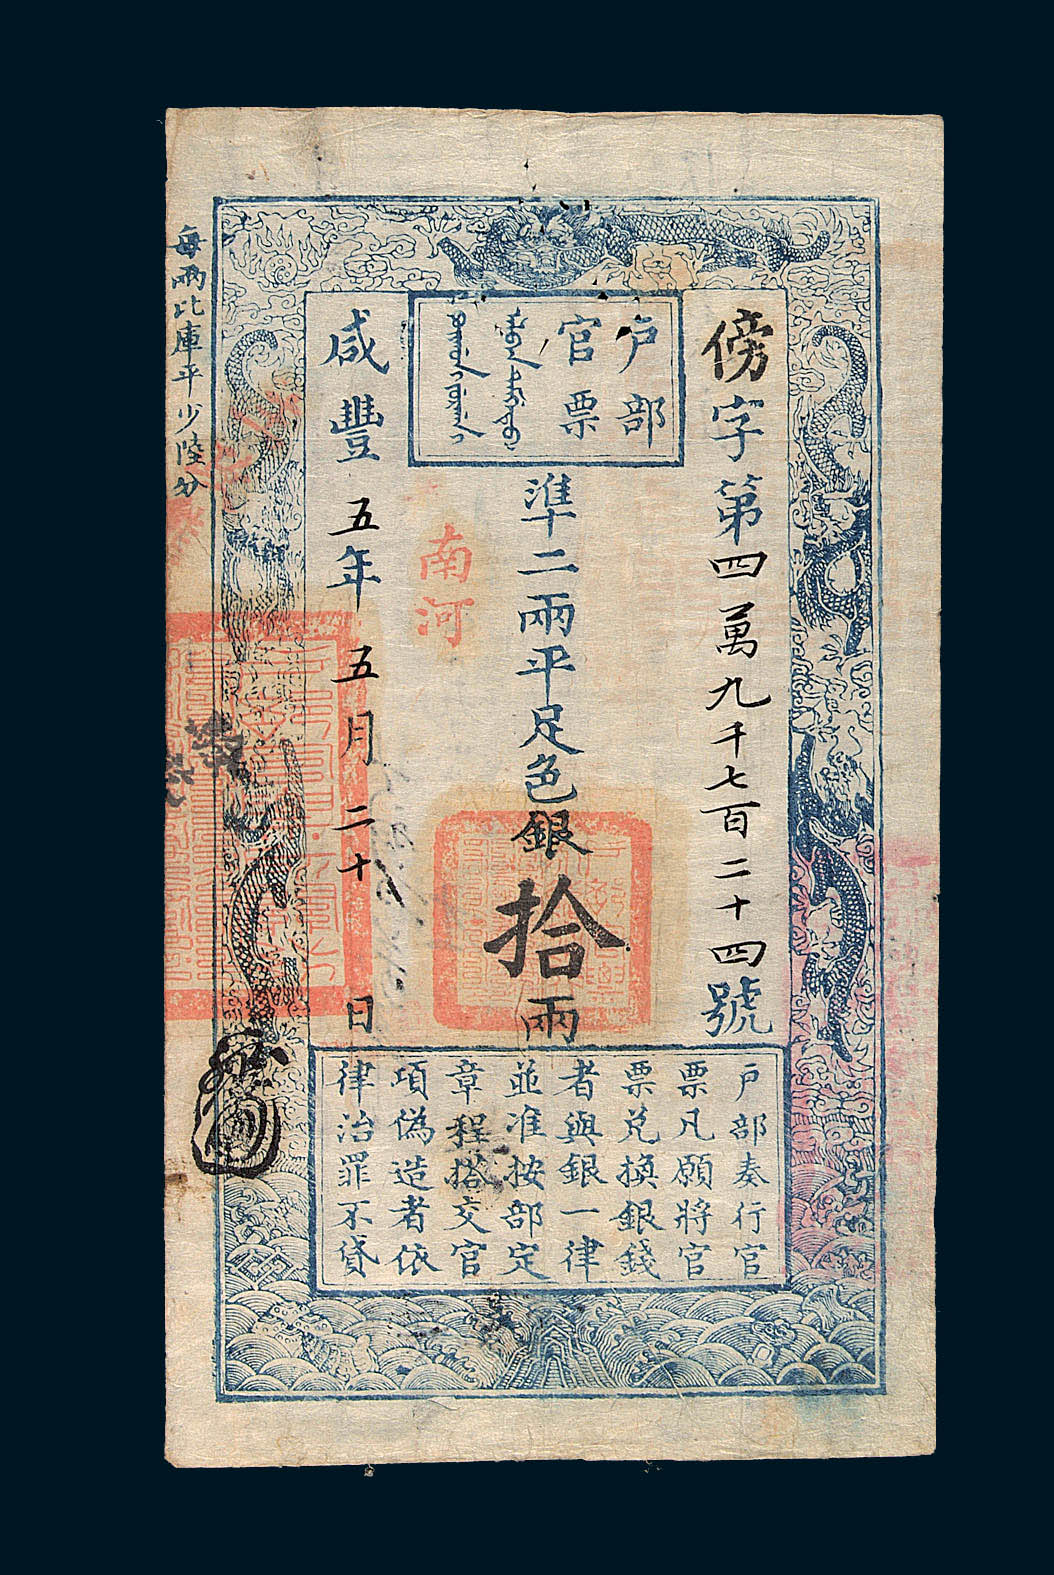 戶部
官票
傍字第四萬九千七百二十四號
準二兩平足色銀拾兩
南河
咸豐五年五月二十日
每兩比庫平少陸分
戶部奏行官
票凡願將官
票兌換銀錢
者與銀一律
並准按部定
章程搭交官
項偽造者依
律治罪不貸